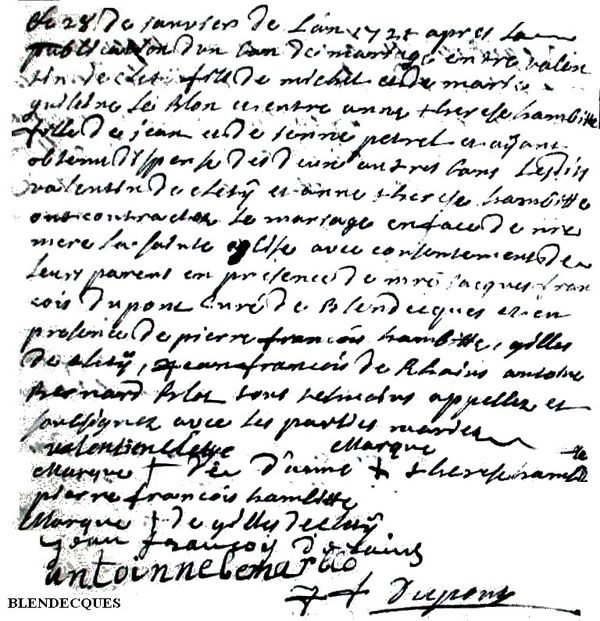 le 28 de janvier de L'an 172 apres la
publication d'un ban de mariage entre valen
tin de clety fils de michel et de marie
guilaine le blon et entre anne therese hambitte
fille de jean et de jenne petrel et ayant
obtenu dispense des deux autres bans Lesdits
valentin de cletÿ et anne therese hambitte
ont contracter le mariage en face de nre
mere la sainte eglise avec consentement de
leurs parent en presence de mre jacques fran
cois dupont curé de Blendecques et en
presence de pierre francois hambitte, gilles
de cletÿ, jean francois de Rhains antoine
Bernard tous temoins appellez et
soussignez avec les parties mariez
valentien Marque
Marque de d'anne therese hambitte
pierre francois hambitte
Marque de gilles decletÿ
jean francois de
antoinne
Dupont
BLENDECQUES